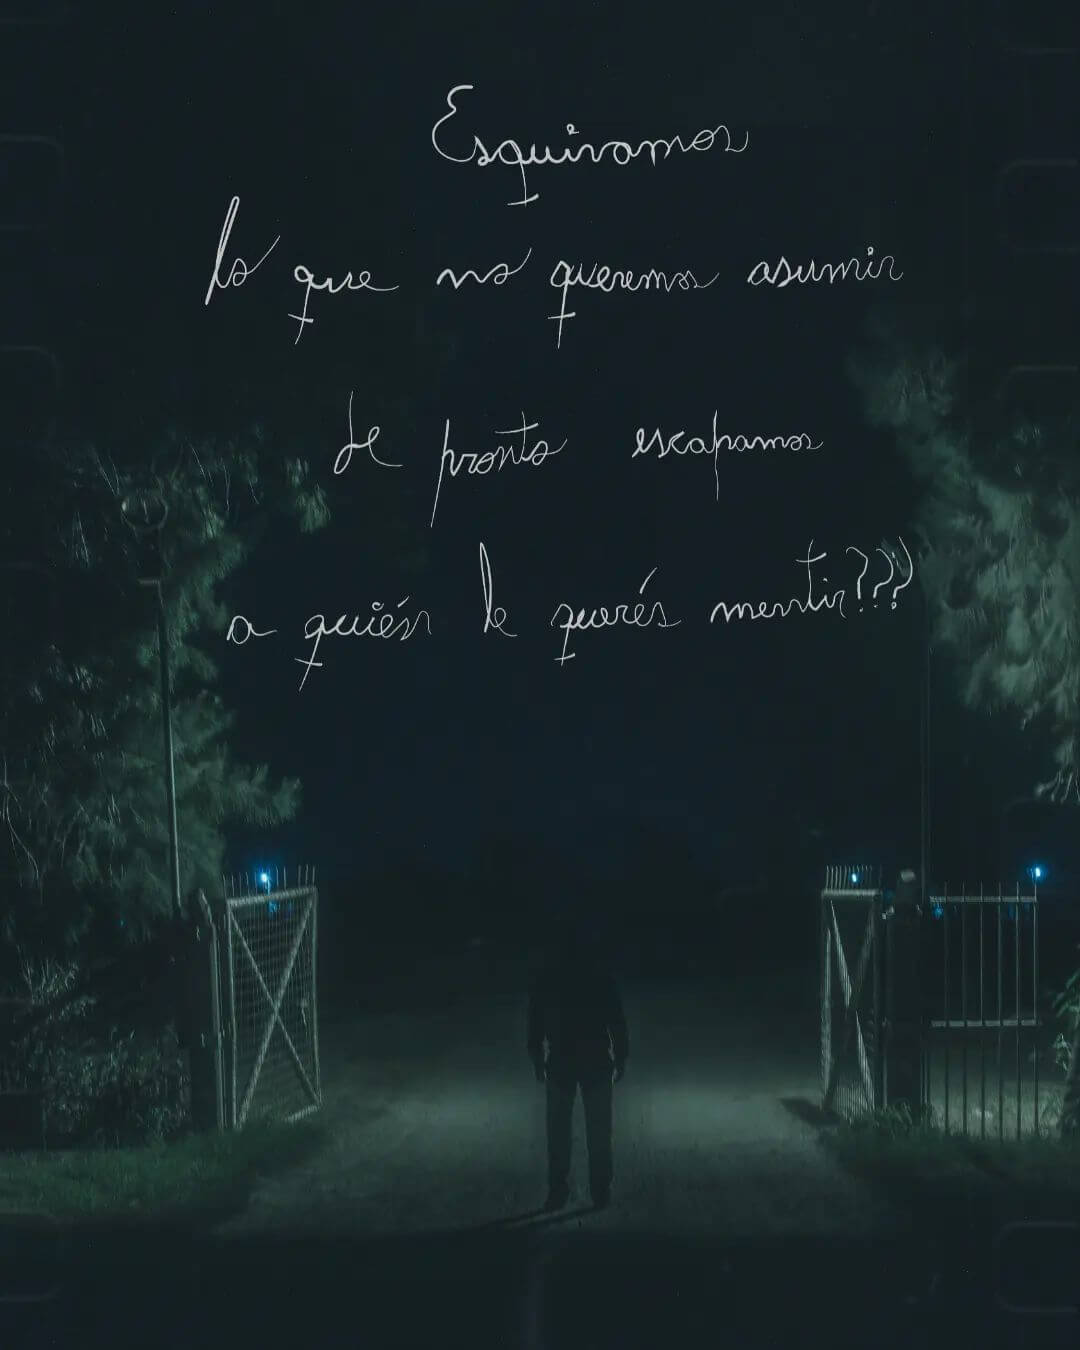 Esquivamos
lo que no queremos asumir
de pronto escapamos
a quién le querés mentir???